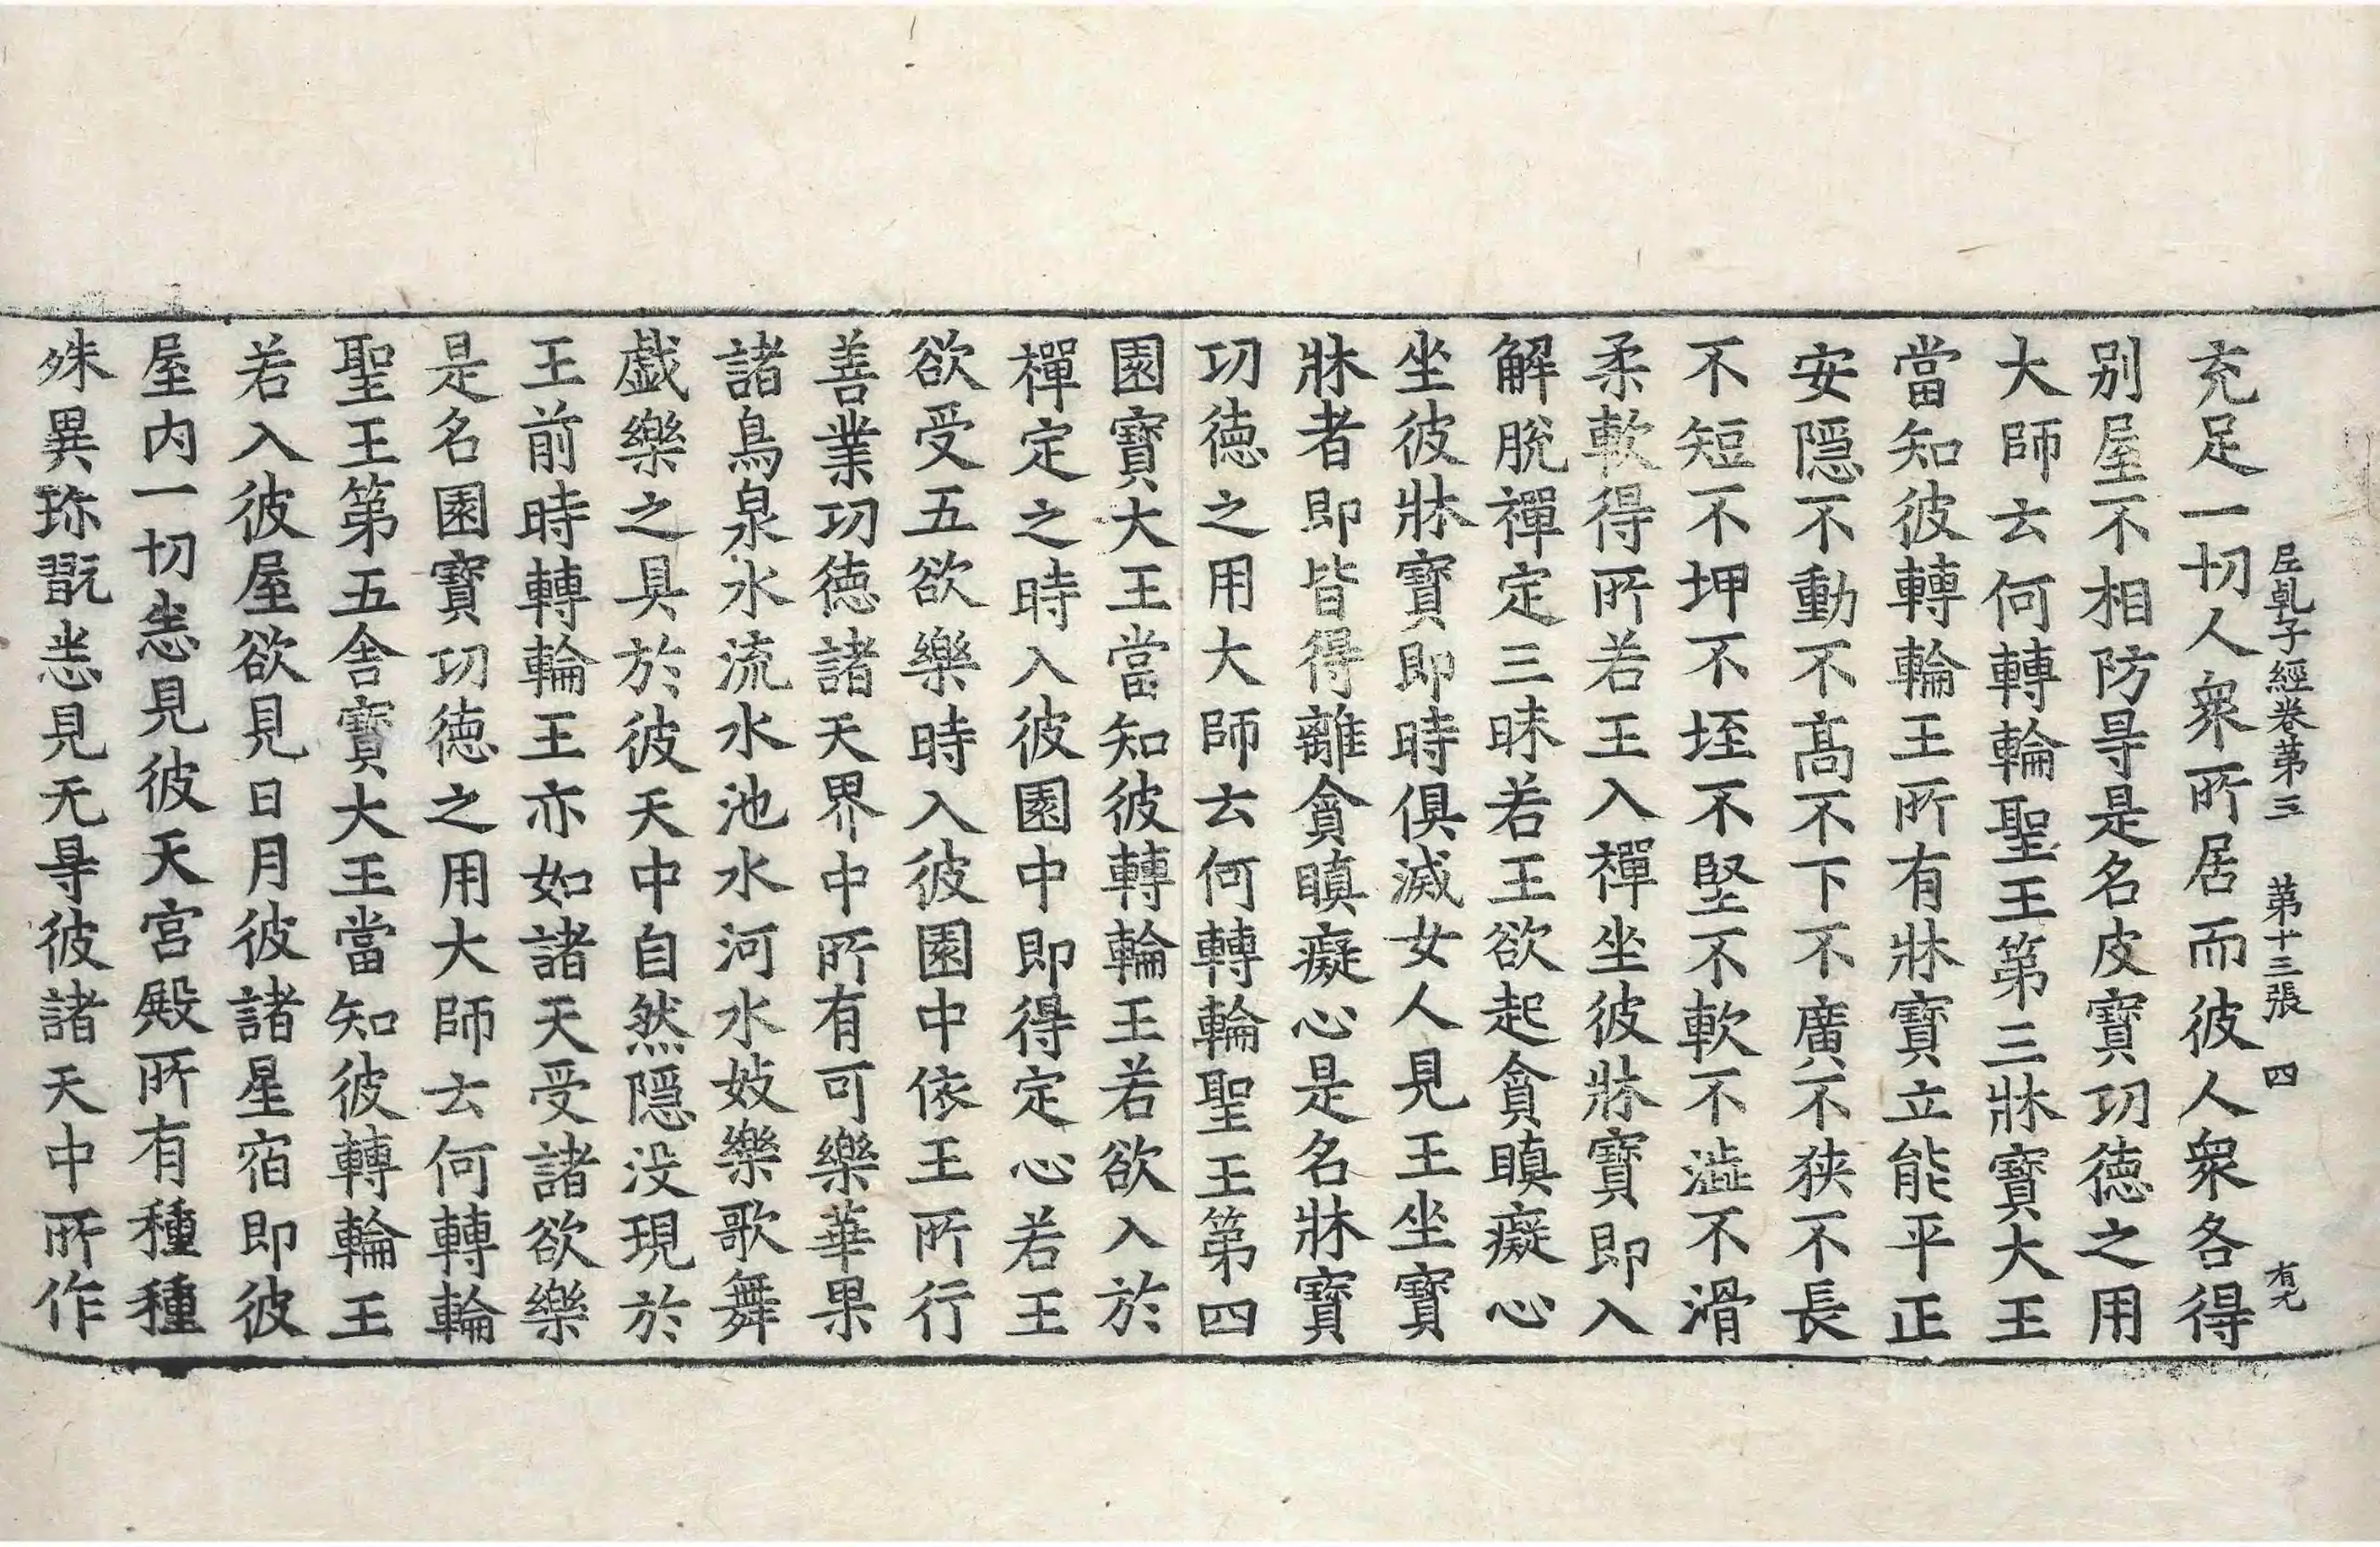 尼乹子經卷第三　第十三張　四　有尤
充足一切人衆所居而彼人衆各得
别屋不相防㝵是名皮寳功德之用
大師云何轉輪聖王第三牀寳大王
當知彼轉輪王所有牀寳立能平正
安隱不動不髙不下不廣不狹不長
不短不坤不垤不堅不軟不澁不滑
柔軟得所若王入禪坐彼牀寳即入
解脫禪定三昧若王欲起貪瞋癡心
坐彼牀寳即時俱滅女人見王坐寳
牀者即皆得離貪瞋癡心是名牀寳
功德之用大師云何轉輪聖王第四
園寳大王當知彼轉輪王若欲入於
禪定之時入彼園中即得定心若王
欲受五欲樂時入彼園中依王所行
善業功德諸天界中所有可樂華果
諸鳥泉水流水池水河水妓樂歌舞
戯樂之具於彼天中自然隱没現於
王前時轉輪王亦如諸天受諸欲樂
是名園寳功德之用大師云何轉輪
聖王第五舍寳大王當知彼轉輪王
若入彼屋欲見日月彼諸星宿即彼
屋内一切悉見彼天宮殿所有種種
殊異珎翫悉見无㝵彼諸天中所作